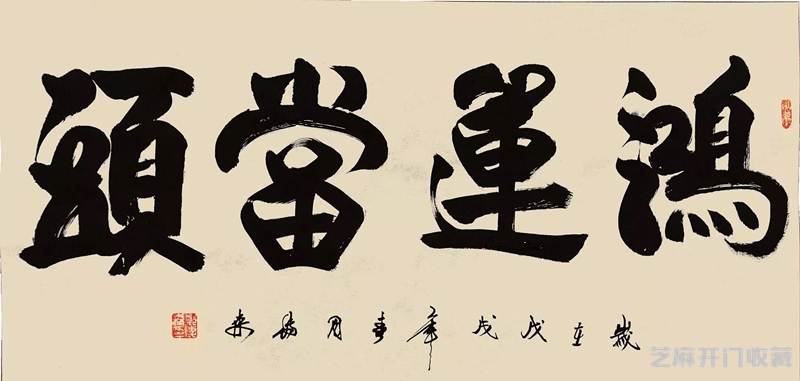 鴻運當頭
歲在戊戌年春月
芝麻开门收藏